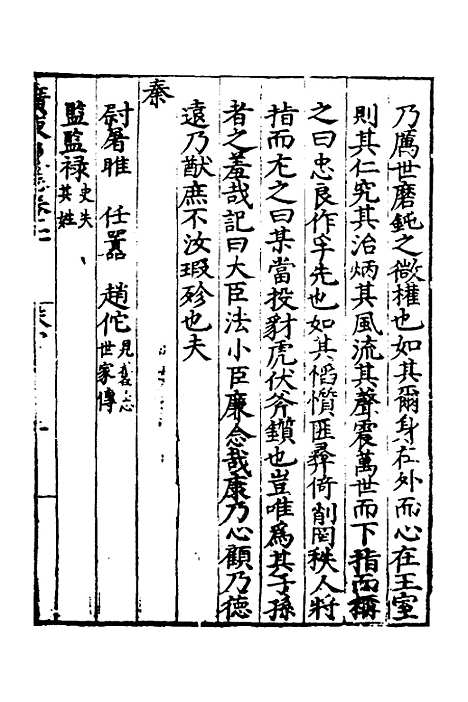 乃厲世磨鈍之微權也如其爾身在外而心在王室
則其仁究其治炳其風流其聲震萬世而下指而稱
之曰忠良作孚先也如其慆慣匪彞倚削罔秩人將
指而尤之曰某當投豺虎伏斧鑕也豈唯為其子孫
者之羞哉記曰大臣法小臣廉念哉康乃心顧乃德
遠乃猷庶不汝瑕殄也夫
秦
尉屠睢 任囂 趙佗見
世家傳
監監祿史失
其姓